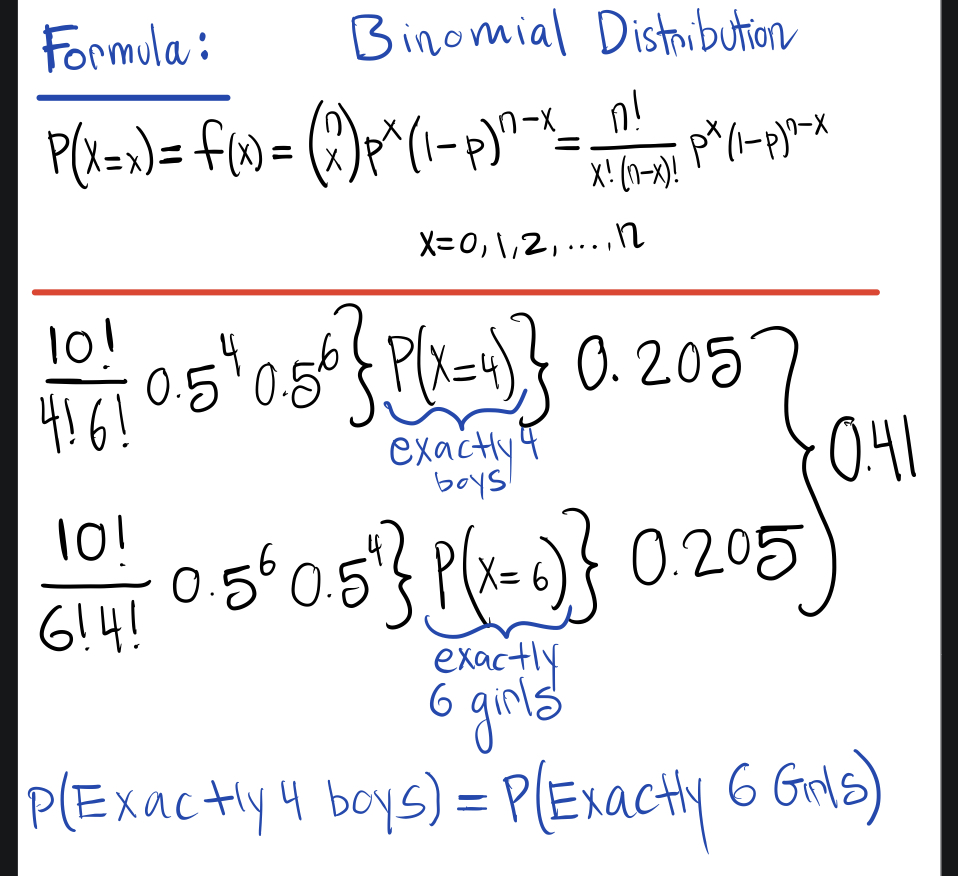 Formula: Binomial Distribution
P(X=x) = f(x) = (n x) p^x (1-p)^n-x = n!/x!(n-x)! p^x (1-p)^n-x
x=0,1,2,...,n
10!/4!6! 0.5^4 0.5^6 } P(X=4) } 0.205 } 0.41
exactly 4
boys
10!/6!4! 0.5^6 0.5^4 } P(X=6) } 0.205
exactly
6 girls
P(Exactly 4 boys) = P(Exactly 6 Girls)